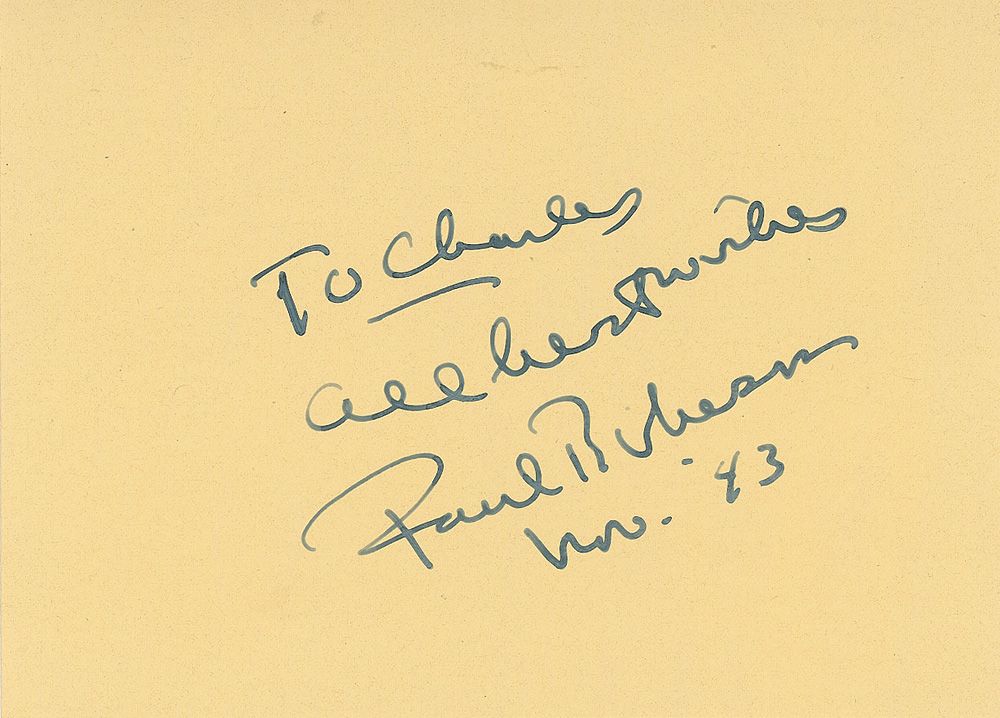 To Charles
All best wishes
Paul Robeson
Nov. 43